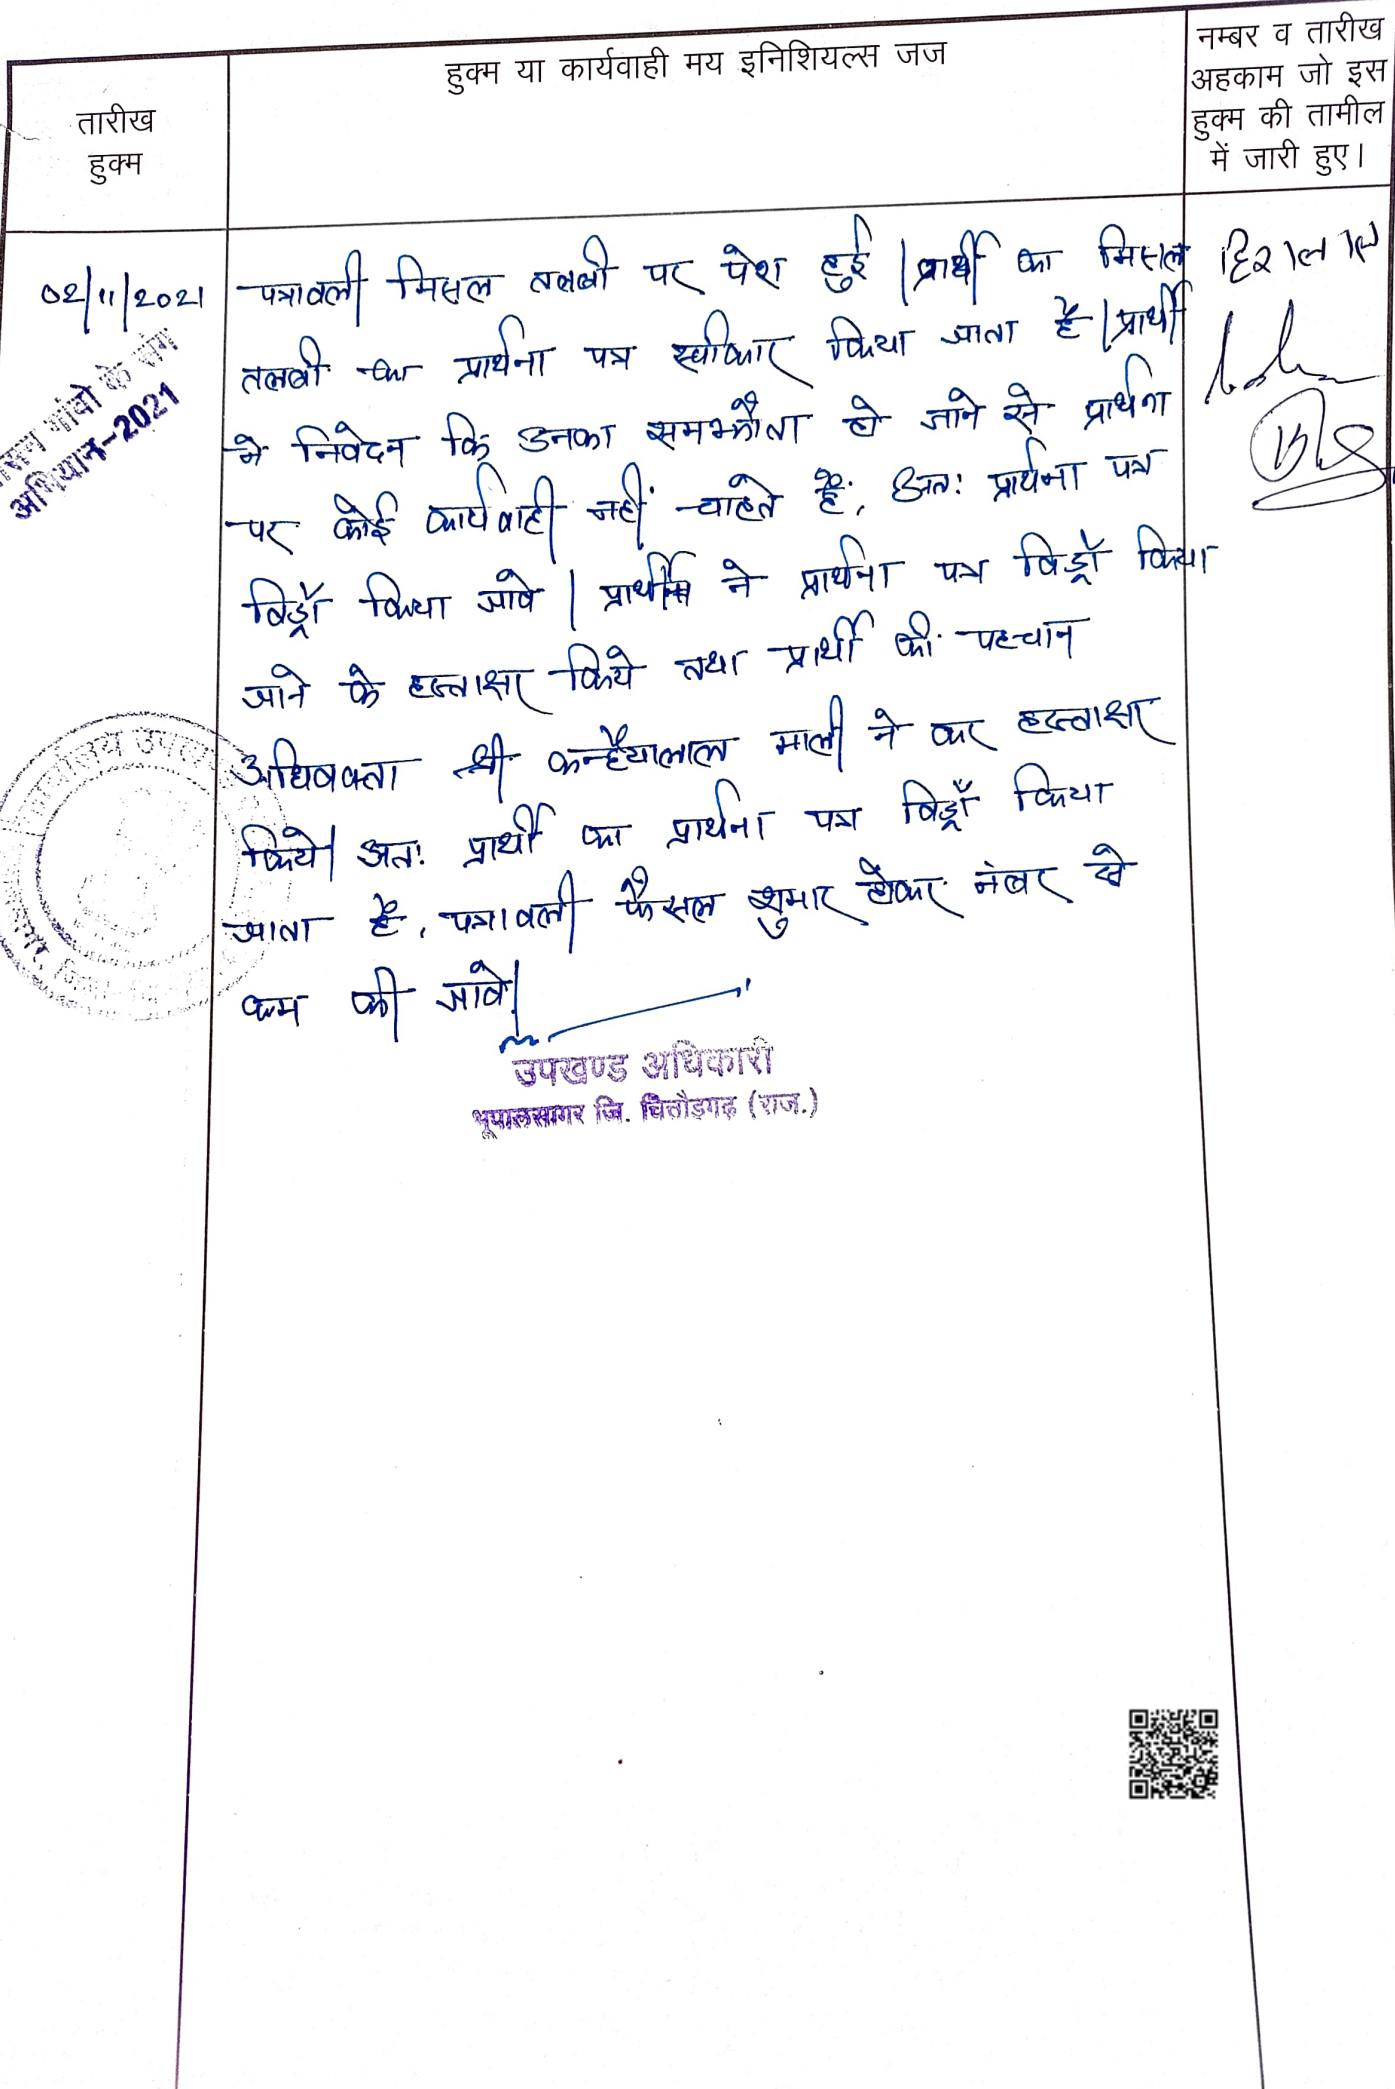 तारीख
हुक्म
हुक्म या कार्यवाही मय इनिशियल्स जज
नम्बर व तारीख
अहकाम जो इस
हुक्म की तामील
में जारी हुए।
02/11/2021
गांवो के संग
अभियान-2021
पत्रावली मिसल तलबी पर पेश हुई | प्रार्थी का मिसल
तलबी का प्रार्थना पत्र स्वीकार किया जाता है | प्रार्थी
ने निवेदन कि उनका समझौता हो जाने से प्रार्थना
पर कोई कार्यवाही नहीं चाहते हैं, अतः प्रार्थना पत्र
विड्रॉ किया जावे | प्रार्थी ने प्रार्थना पत्र विड्रॉ किया
जाने के हस्ताक्षर किये तथा प्रार्थी की पहचान
अधिवक्ता श्री कन्हैयालाल माली ने कर हस्ताक्षर
किये| अतः प्रार्थी का प्रार्थना पत्र विड्रॉ किया
जाता है, पत्रावली फैसल शुमार होकर नंबर से
कम की जावे|
हिरालाल
उपखण्ड अधिकारी
भूपालसागर जि. चित्तौड़गढ़ (राज.)